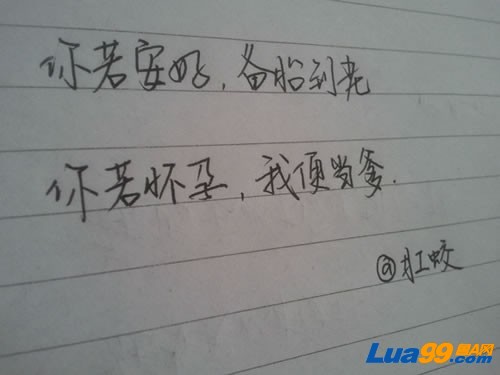 你若安好，备胎到老
你若怀孕，我便当爹.
@扛蛟
Lua99